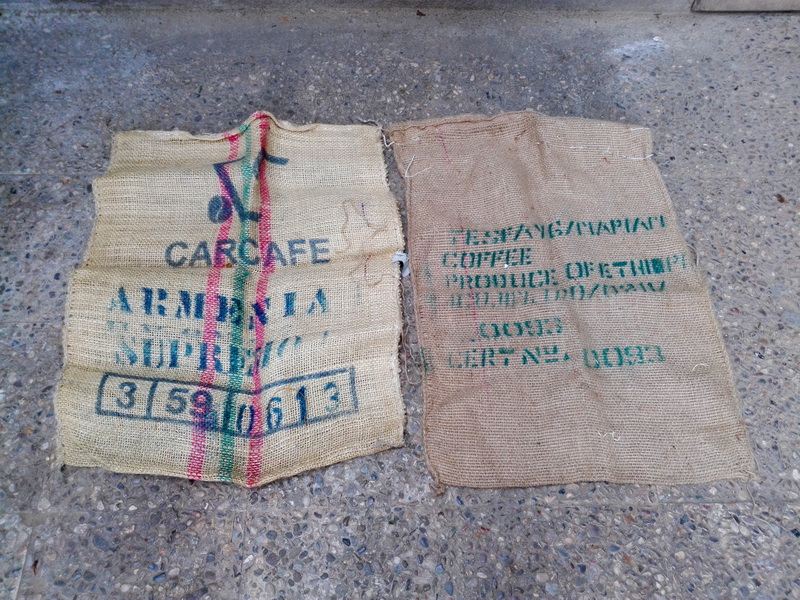 CARCAFE
ARMENIA
SUPREMO
3 59 0613
COFFEE
PRODUCE OF ETHIOP
0093
CERT No. 0093